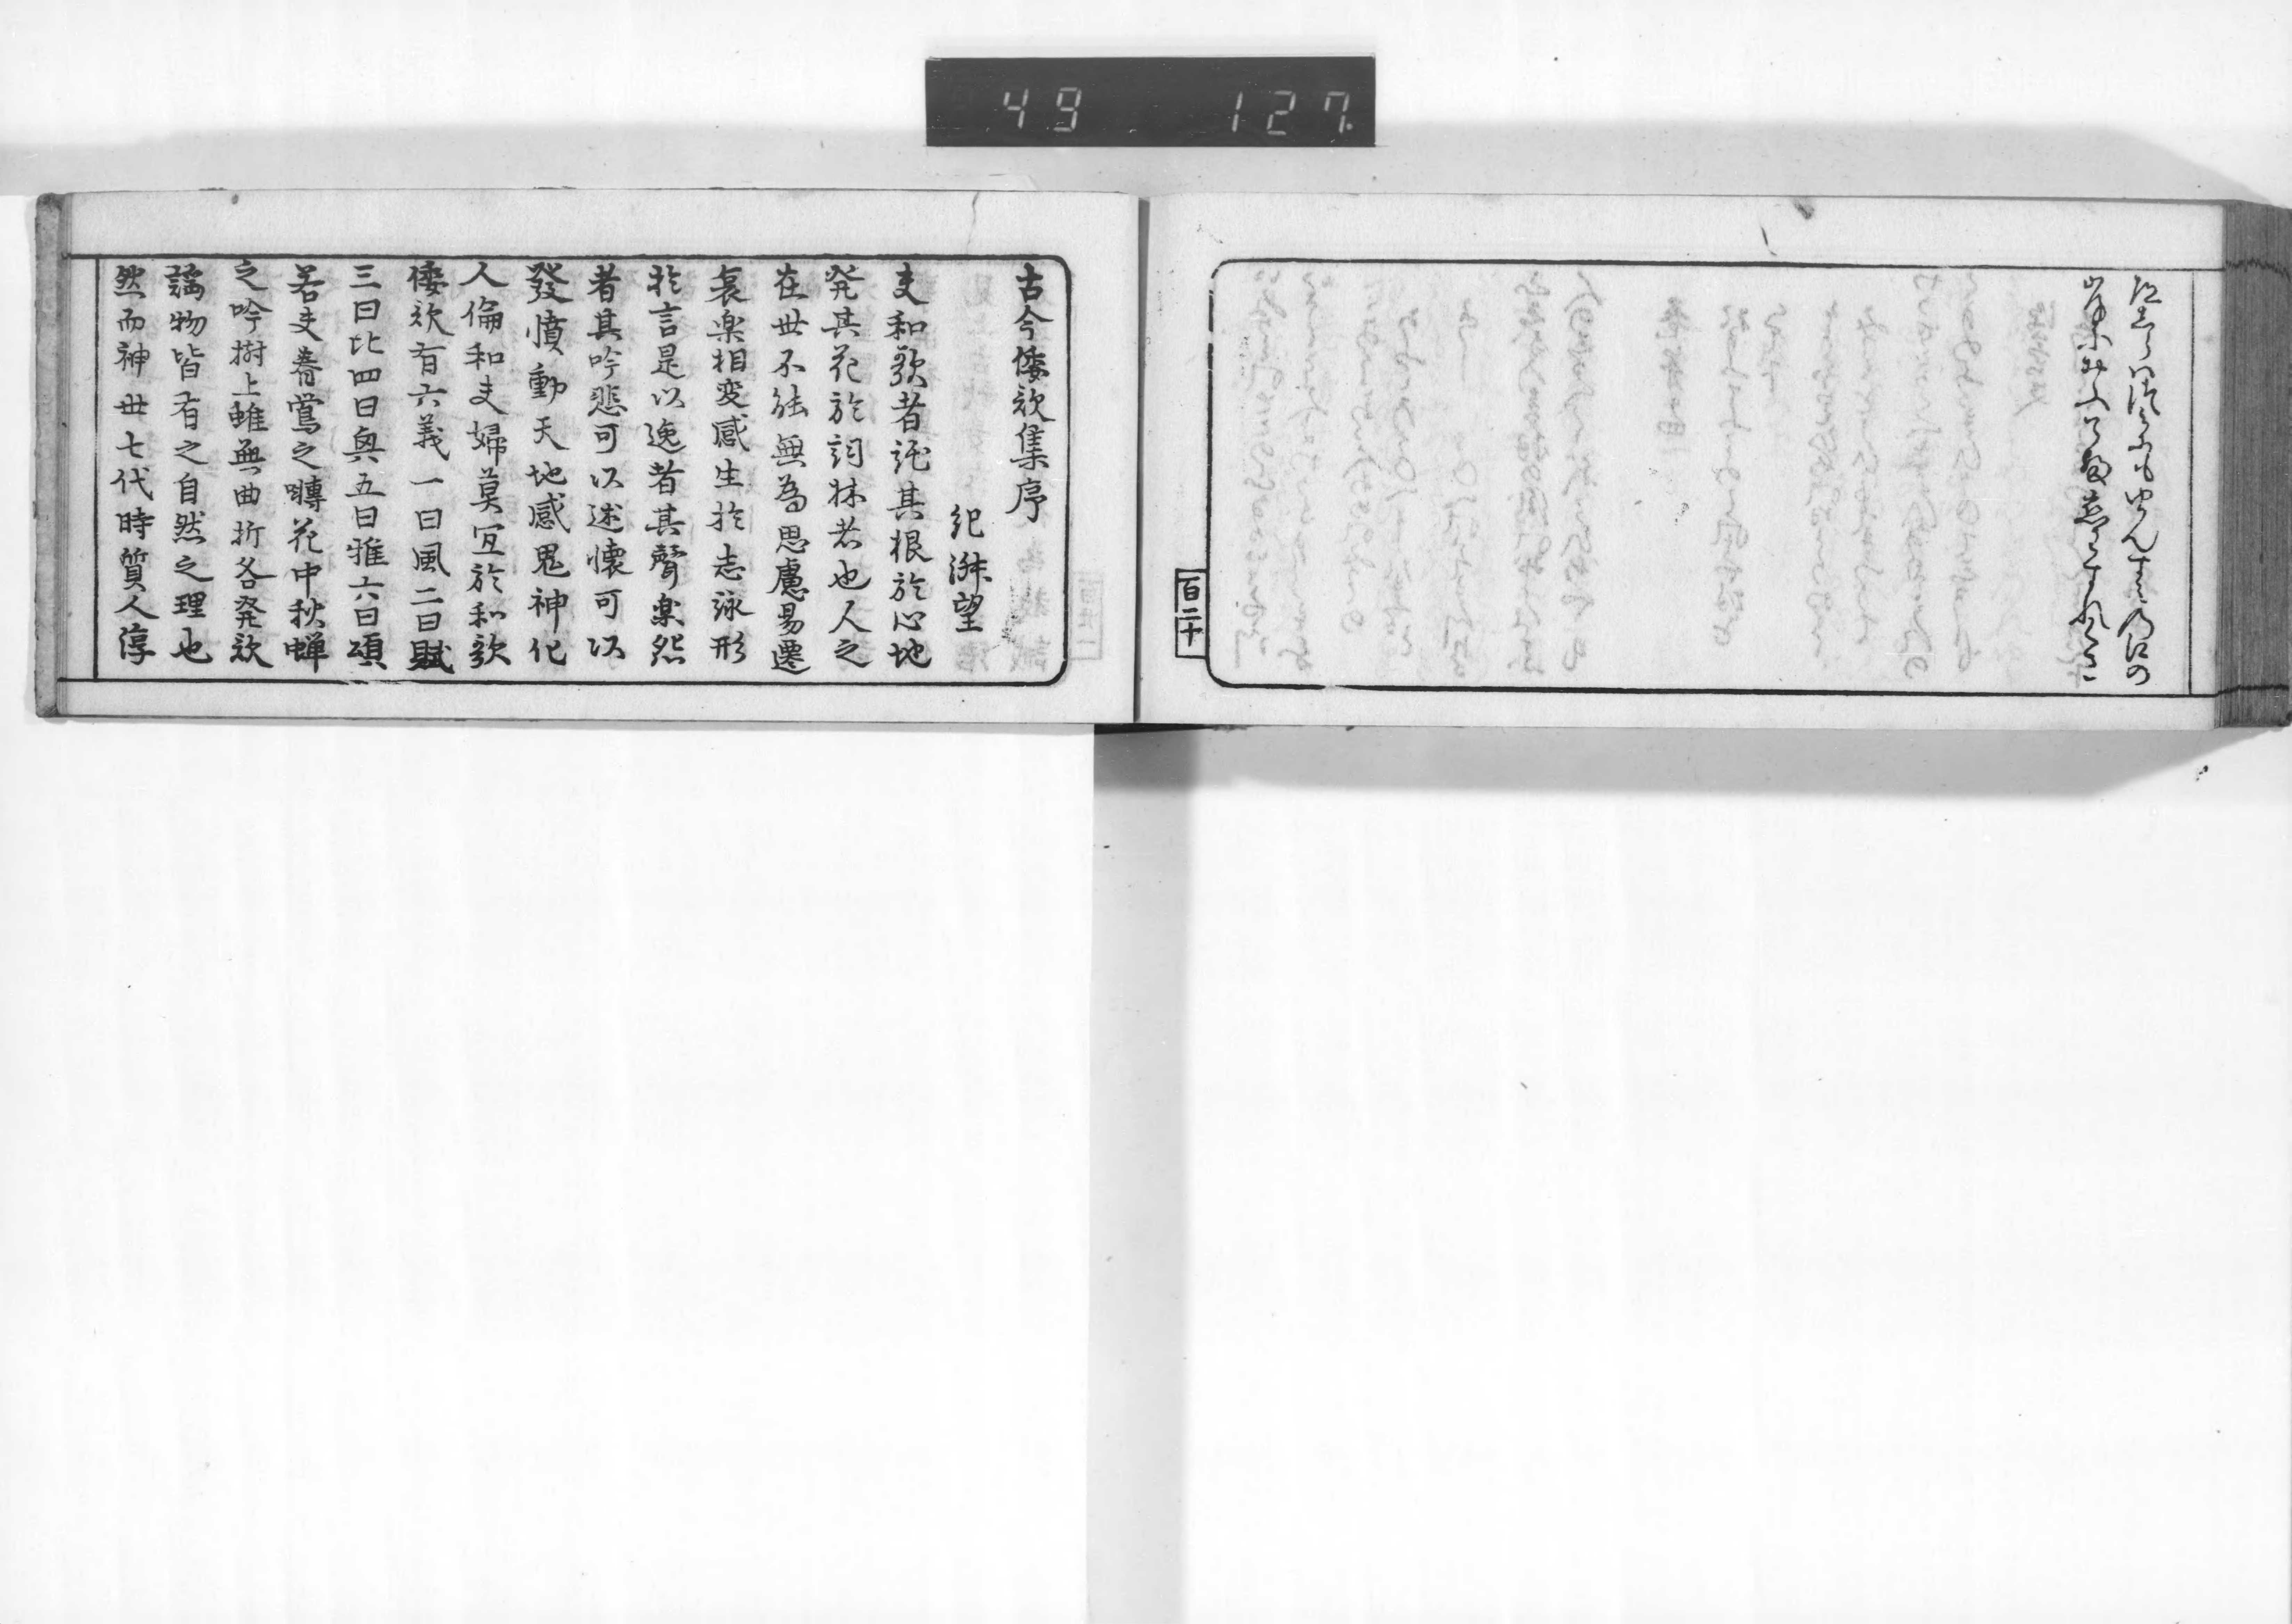 49 127
道しらハつミにもゆかんすミ乃江の
岸におふてふ恋わすれくさ
百二十
古今倭歌集序
紀淑望
夫和歌者託其根於心地
発其花於詞林者也人之
在世不能無為思慮易遷
哀楽相変感生於志詠形
於言是以逸者其聲楽怨
者其吟悲可以述懐可以
發憤動天地感鬼神化
人倫和夫婦莫冝於和歌
倭歌有六義一曰風二曰賦
三曰比四曰興五曰雅六曰頌
若夫春鶯之囀花中秋蝉
之吟樹上雖無曲折各発歌
謡物皆有之自然之理也
然而神世七代時質人淳